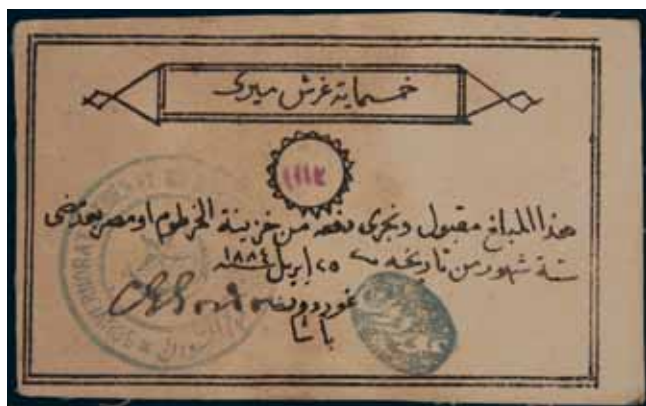 خمسماية غرش ميرى
هذا المبلغ مقبول ويجرى دفعه من خزينة الخرطوم او مصر بعد مضى
ستة شهور من تاريخه ٢٥ ابريل سنة ١٨٨٤
غوردون
باشا